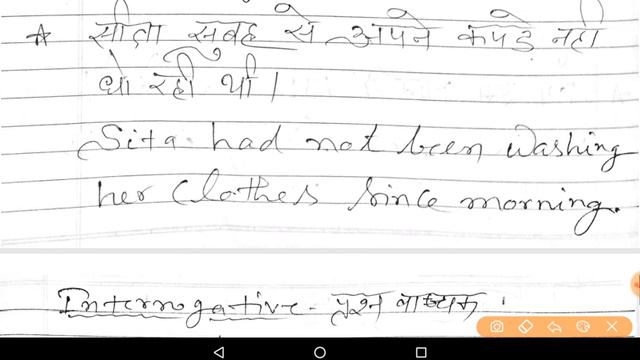 * सीता सुबह से अपने कपडे नही
धो रही थी।
Sita had not been washing
her clothes since morning.
Interrogative - प्रश्न वाचक